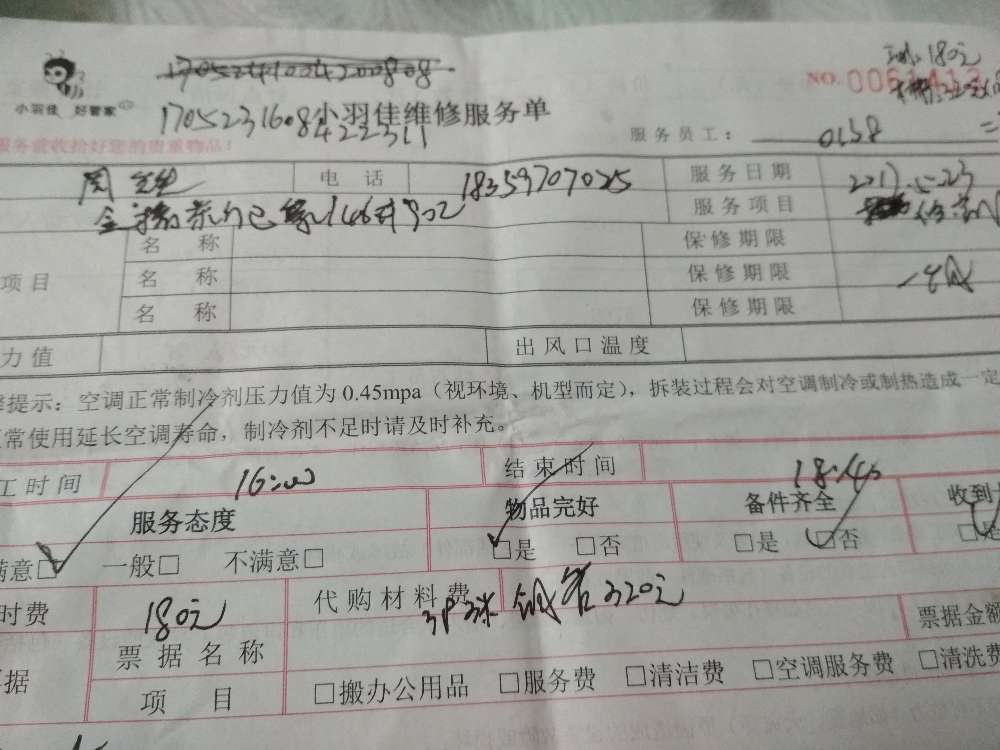 17052410042200808
小羽佳 好管家
NO.
180元
1705231608422311
小羽佳维修服务单
服务员工: 0158
服务前收拾好您的贵重物品!
周
电 话 18359707025
服务日期 2017.5.23
服务项目
名 称
保修期限
项目
名 称
保修期限
名 称
保修期限
力值
出风口温度
提示:空调正常制冷剂压力值为 0.45mpa(视环境、机型而定),拆装过程会对空调制冷或制热造成一定
常使用延长空调寿命,制冷剂不足时请及时补充。
工时间 16:00 结束时间 18:40
服务态度 物品完好 备件齐全 收到
满意□ 一般□ 不满意□ □是 □否 □是 □否
时费 180元 代购材料费 3P 3米 铜管 320元
票据名称
票据金额
据
项 目 □搬办公用品 □服务费 □清洁费 □空调服务费 □清洗费